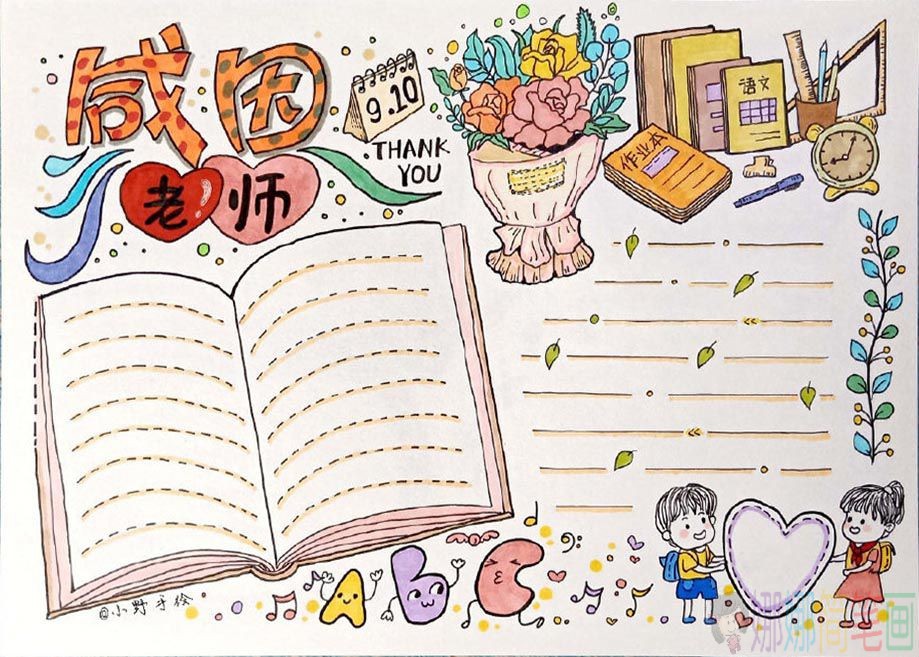 感恩
老师
9.10
THANK
YOU
语文
作业本
Abc
@小野手绘
娜娜简笔画